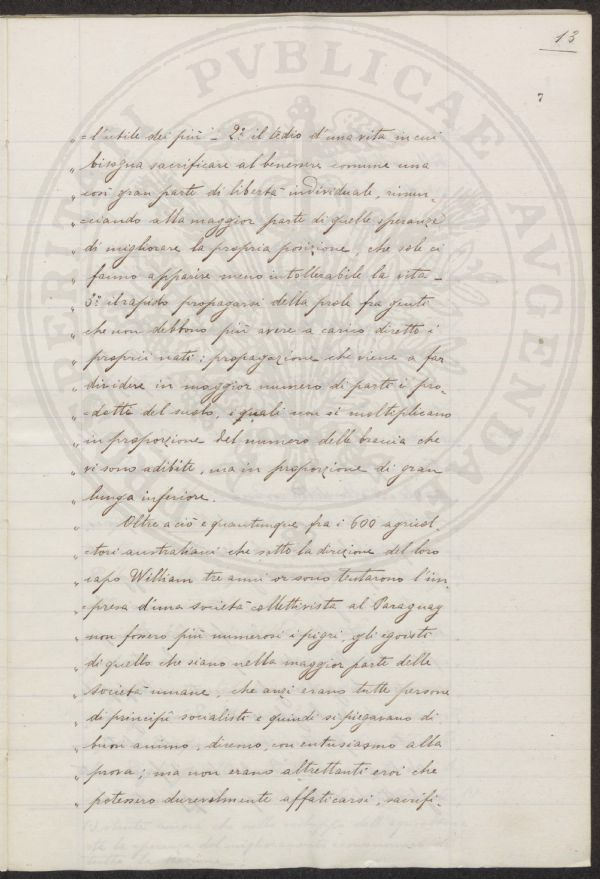 13
7
" =l'utile dei più - 2º il tedio d'una vita in cui
" bisogna sacrificare al benessere comune una
" così gran parte di libertà individuale, rinun-
" =ciando alla maggior parte di quelle speranze
" di migliorare la propria posizione, che sole ci
" fanno apparire meno intollerabile la vita -
" 3º il rapido propagarsi della prole fra genti
" che non debbono più avere a carico diretto i
" proprii nati; propagazione che viene a far
" dividere in maggior numero di parti i pro-
" =dotti del suolo, i quali non si moltiplicano
" in proporzione del numero delle braccia che
" vi sono adibite, ma in proporzione di gran
" lunga inferiore.
" Oltre a ciò e quantunque fra i 600 agricol-
" =tori australiani che sotto la direzione del loro
" capo William tre anni or sono tentarono l'im-
" =presa d'una società collettivista al Paraguay
" non fossero più numerosi i pigri, gli egoisti
" di quello che siano nella maggior parte delle
" società umane, che anzi erano tutte persone
" di principî socialisti e quindi si piegavano di
" buon animo, diremo, con entusiasmo alla
" prova; ma non erano altrettanti eroi che
" potessero durevolmente affaticarsi, sacrifi-
PERITI PVBLICAE AVGENDAE